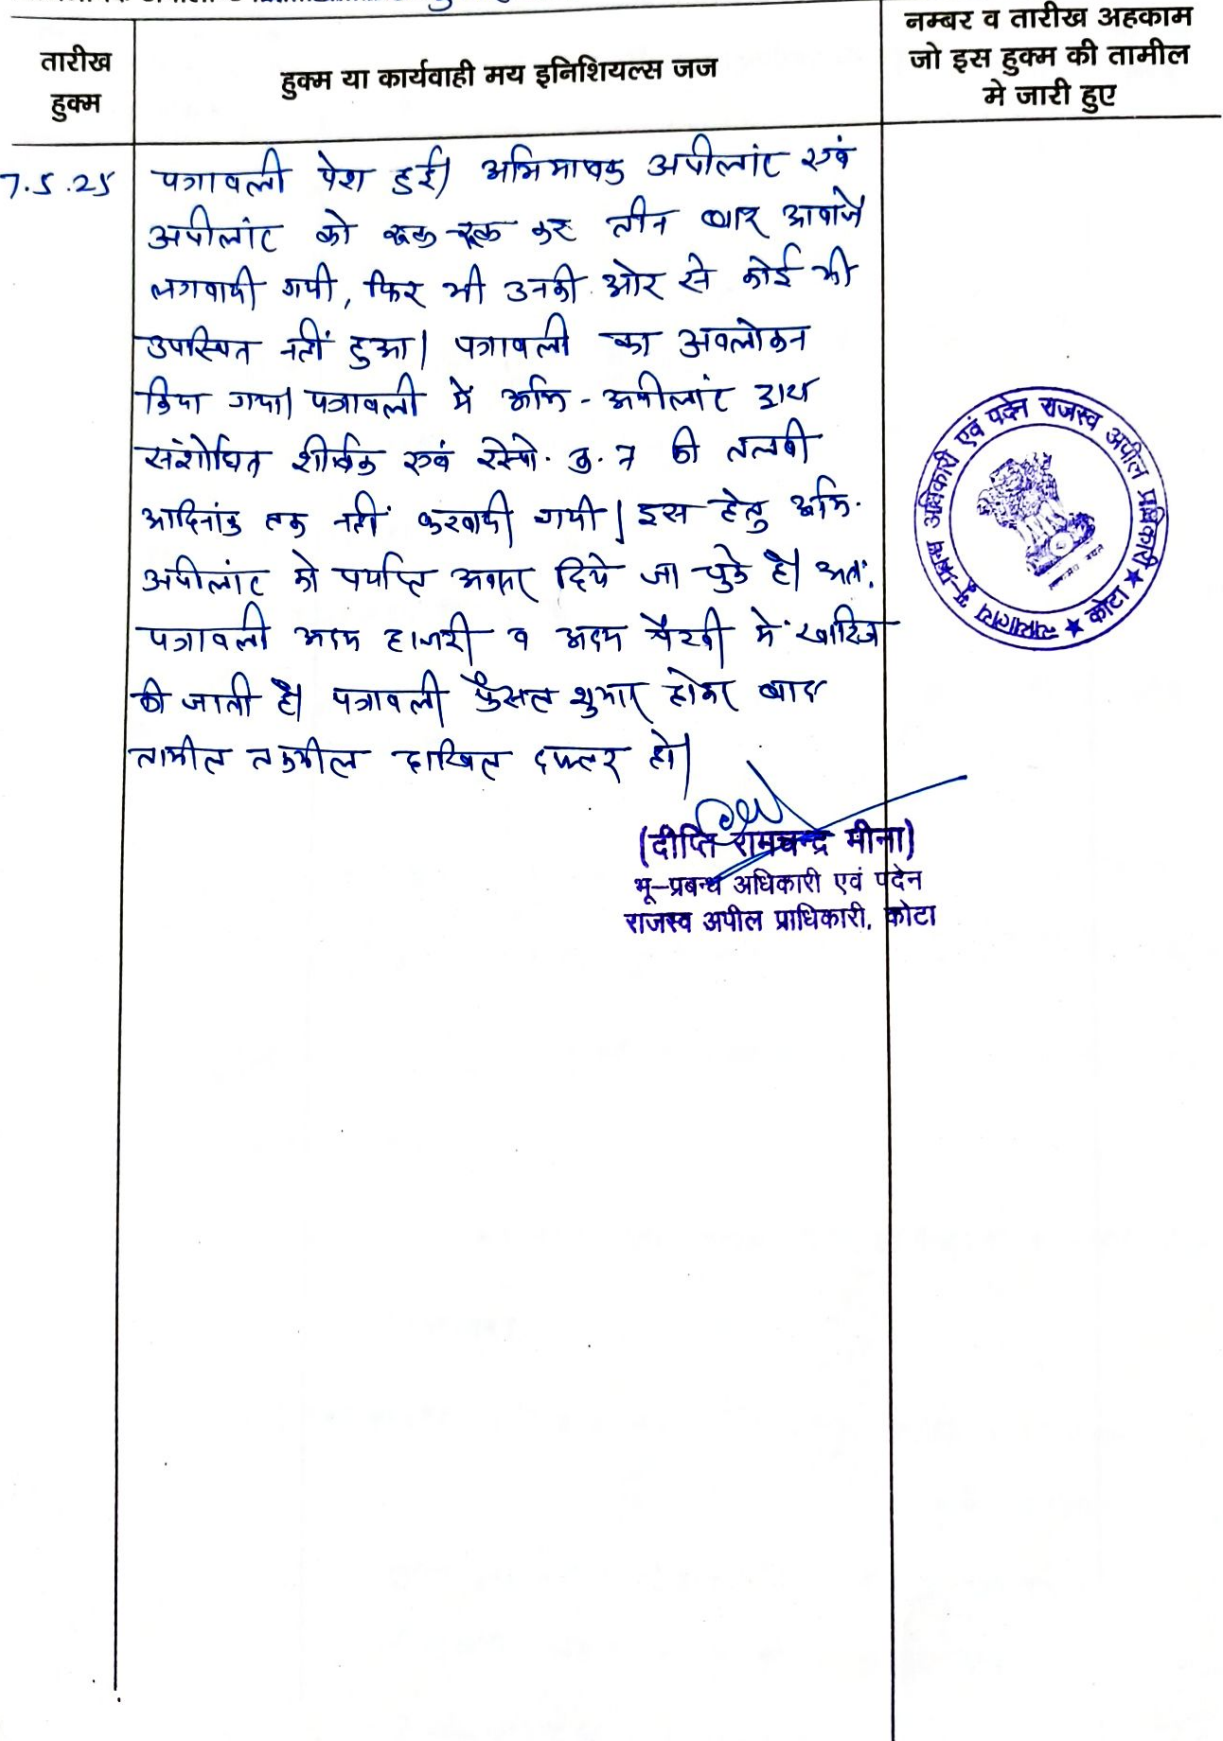 तारीख
हुक्म
हुक्म या कार्यवाही मय इनिशियल्स जज
नम्बर व तारीख अहकाम
जो इस हुक्म की तामील
मे जारी हुए
7.5.25
पत्रावली पेश हुई। अभिभाषक अपीलांट एवं
अपीलांट को रूक-रूक कर तीन बार आवाजें
लगवायी गयी, फिर भी उनकी ओर से कोई भी
उपस्थित नहीं हुआ। पत्रावली का अवलोकन
किया गया। पत्रावली में अभि-अपीलांट द्वारा
संशोधित शीर्षक एवं रेस्पो. क्र. 7 की तलबी
आदिनांक तक नहीं करवायी गयी। इस हेतु अभि.
अपीलांट को पर्याप्त अवसर दिये जा चुके है। अतः
पत्रावली अदम हाजरी व अदम पैरवी में खारिज
की जाती है। पत्रावली फैसल शुमार होकर बाद
तामील तकमील दाखिल दफ्तर हो।
(दीप्ति रामचन्द्र मीना)
भू-प्रबन्ध अधिकारी एवं पदेन
राजस्व अपील प्राधिकारी, कोटा
न्यायालय भू-प्रबन्ध अधिकारी एवं पदेन राजस्व अपील प्राधिकारी ★ कोटा ★